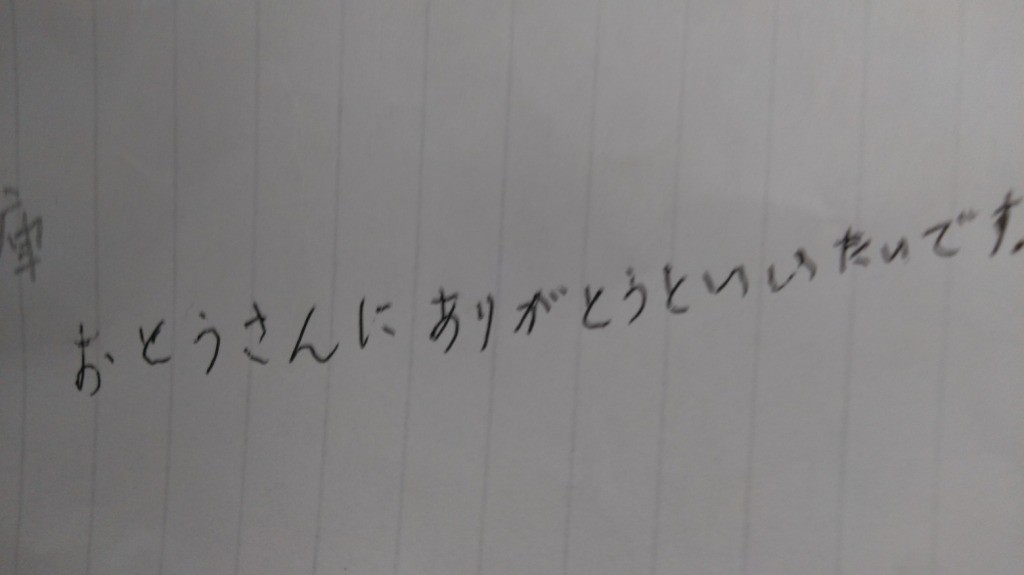 おとうさんにありがとうといいたいです。